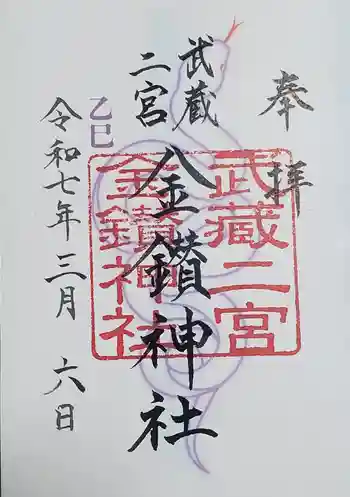 奉拝
武蔵
二宮
金鑚神社
武蔵二宮
金鑚神社
乙巳
令和七年三月六日